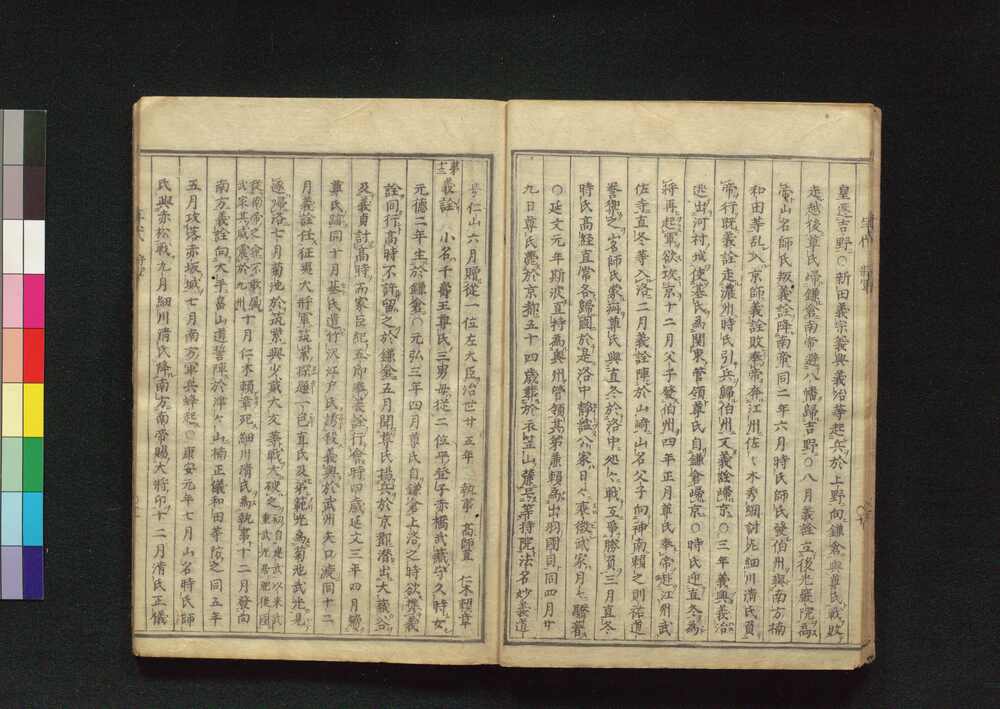 皇居吉野○新田義宗義興義治等起兵於上野向鎌倉與尊氏戰敗
走越後尊氏帰鎌倉南帝避八幡歸吉野○八月義詮立後光嚴院為
帝山名師氏叛義詮降南帝同二年六月時氏師氏發伯州與南方楠
和田等乱入京師義詮敗奉帝奔江州佐々木秀綱討死細川清氏負
帝行既義詮走濃州時氏引兵歸伯州又義詮歸京○三年義興義治
逃出河村城使基氏為関東管領尊氏自鎌倉帰京○時氏迎直冬為
將再起軍欲攻京十二月父子發伯州四年正月尊氏奉帝避江州武
佐寺直冬等入洛二月義詮陣於山崎山名父子向神南賴之則祐道
誉禦之師氏蒙疵尊氏與直冬於洛中処々戰互爭勝負三月直冬
時氏高経直常各歸國於是洛中静謐公家日々衰微武家月々驕奢
○延文元年斯波直持為奥州管領其弟兼賴為出羽國司同四月廿
九日尊氏薨於京都五十四歲葬於衣笠山麓号等持院法名妙義道
号仁山六月贈從一位左大臣治世廿五年 執事 高師直 仁木頼章
第十二
義詮 小名千壽王尊氏三男母從二位平登子赤橋武藏守久時女
元德二年生於鎌倉○元弘三年四月尊氏自鎌倉上洛之時欲携義
詮同行高時不許留之於鎌倉五月聞尊氏揚兵於京都潜出大藏谷
及義貞討高時而家臣紀五郎奉義詮行會時四歲延文三年四月繼
尊氏跡同十月基氏遣竹沢江戸氏謀殺義興於武州矢口渡同十二
月義詮任征夷大將軍筑紫探題一色直氏及弟範光為菊池武光見
逐帰洛七月菊池於筑紫與少貳大友等戰大破之初自建武以来武重武光居肥後國
從南帝之命不敢屬武家其威震於九州十月仁木頼章死細川清氏為執事十二月發向
南方義詮向大平畠山道誓陣於津々山楠正儀和田等防之同五年
五月攻落赤坂城七月南方軍兵蜂起○康安元年七月山名時氏師
氏與赤松戰九月細川清氏降南方南帝賜大將印十二月清氏正儀